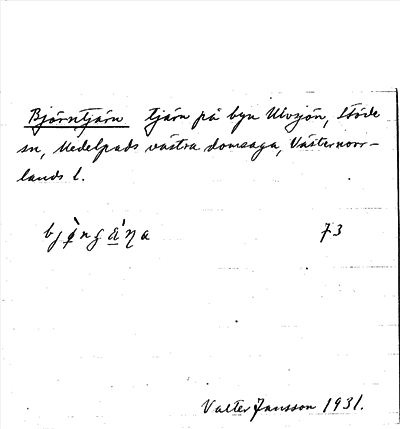 Björntjärn tjärn på byn Ulvsjön, Stöde
sn, Medelpads västra domsaga, Västernorr-
lands l.
73
Valter Jansson 1931.